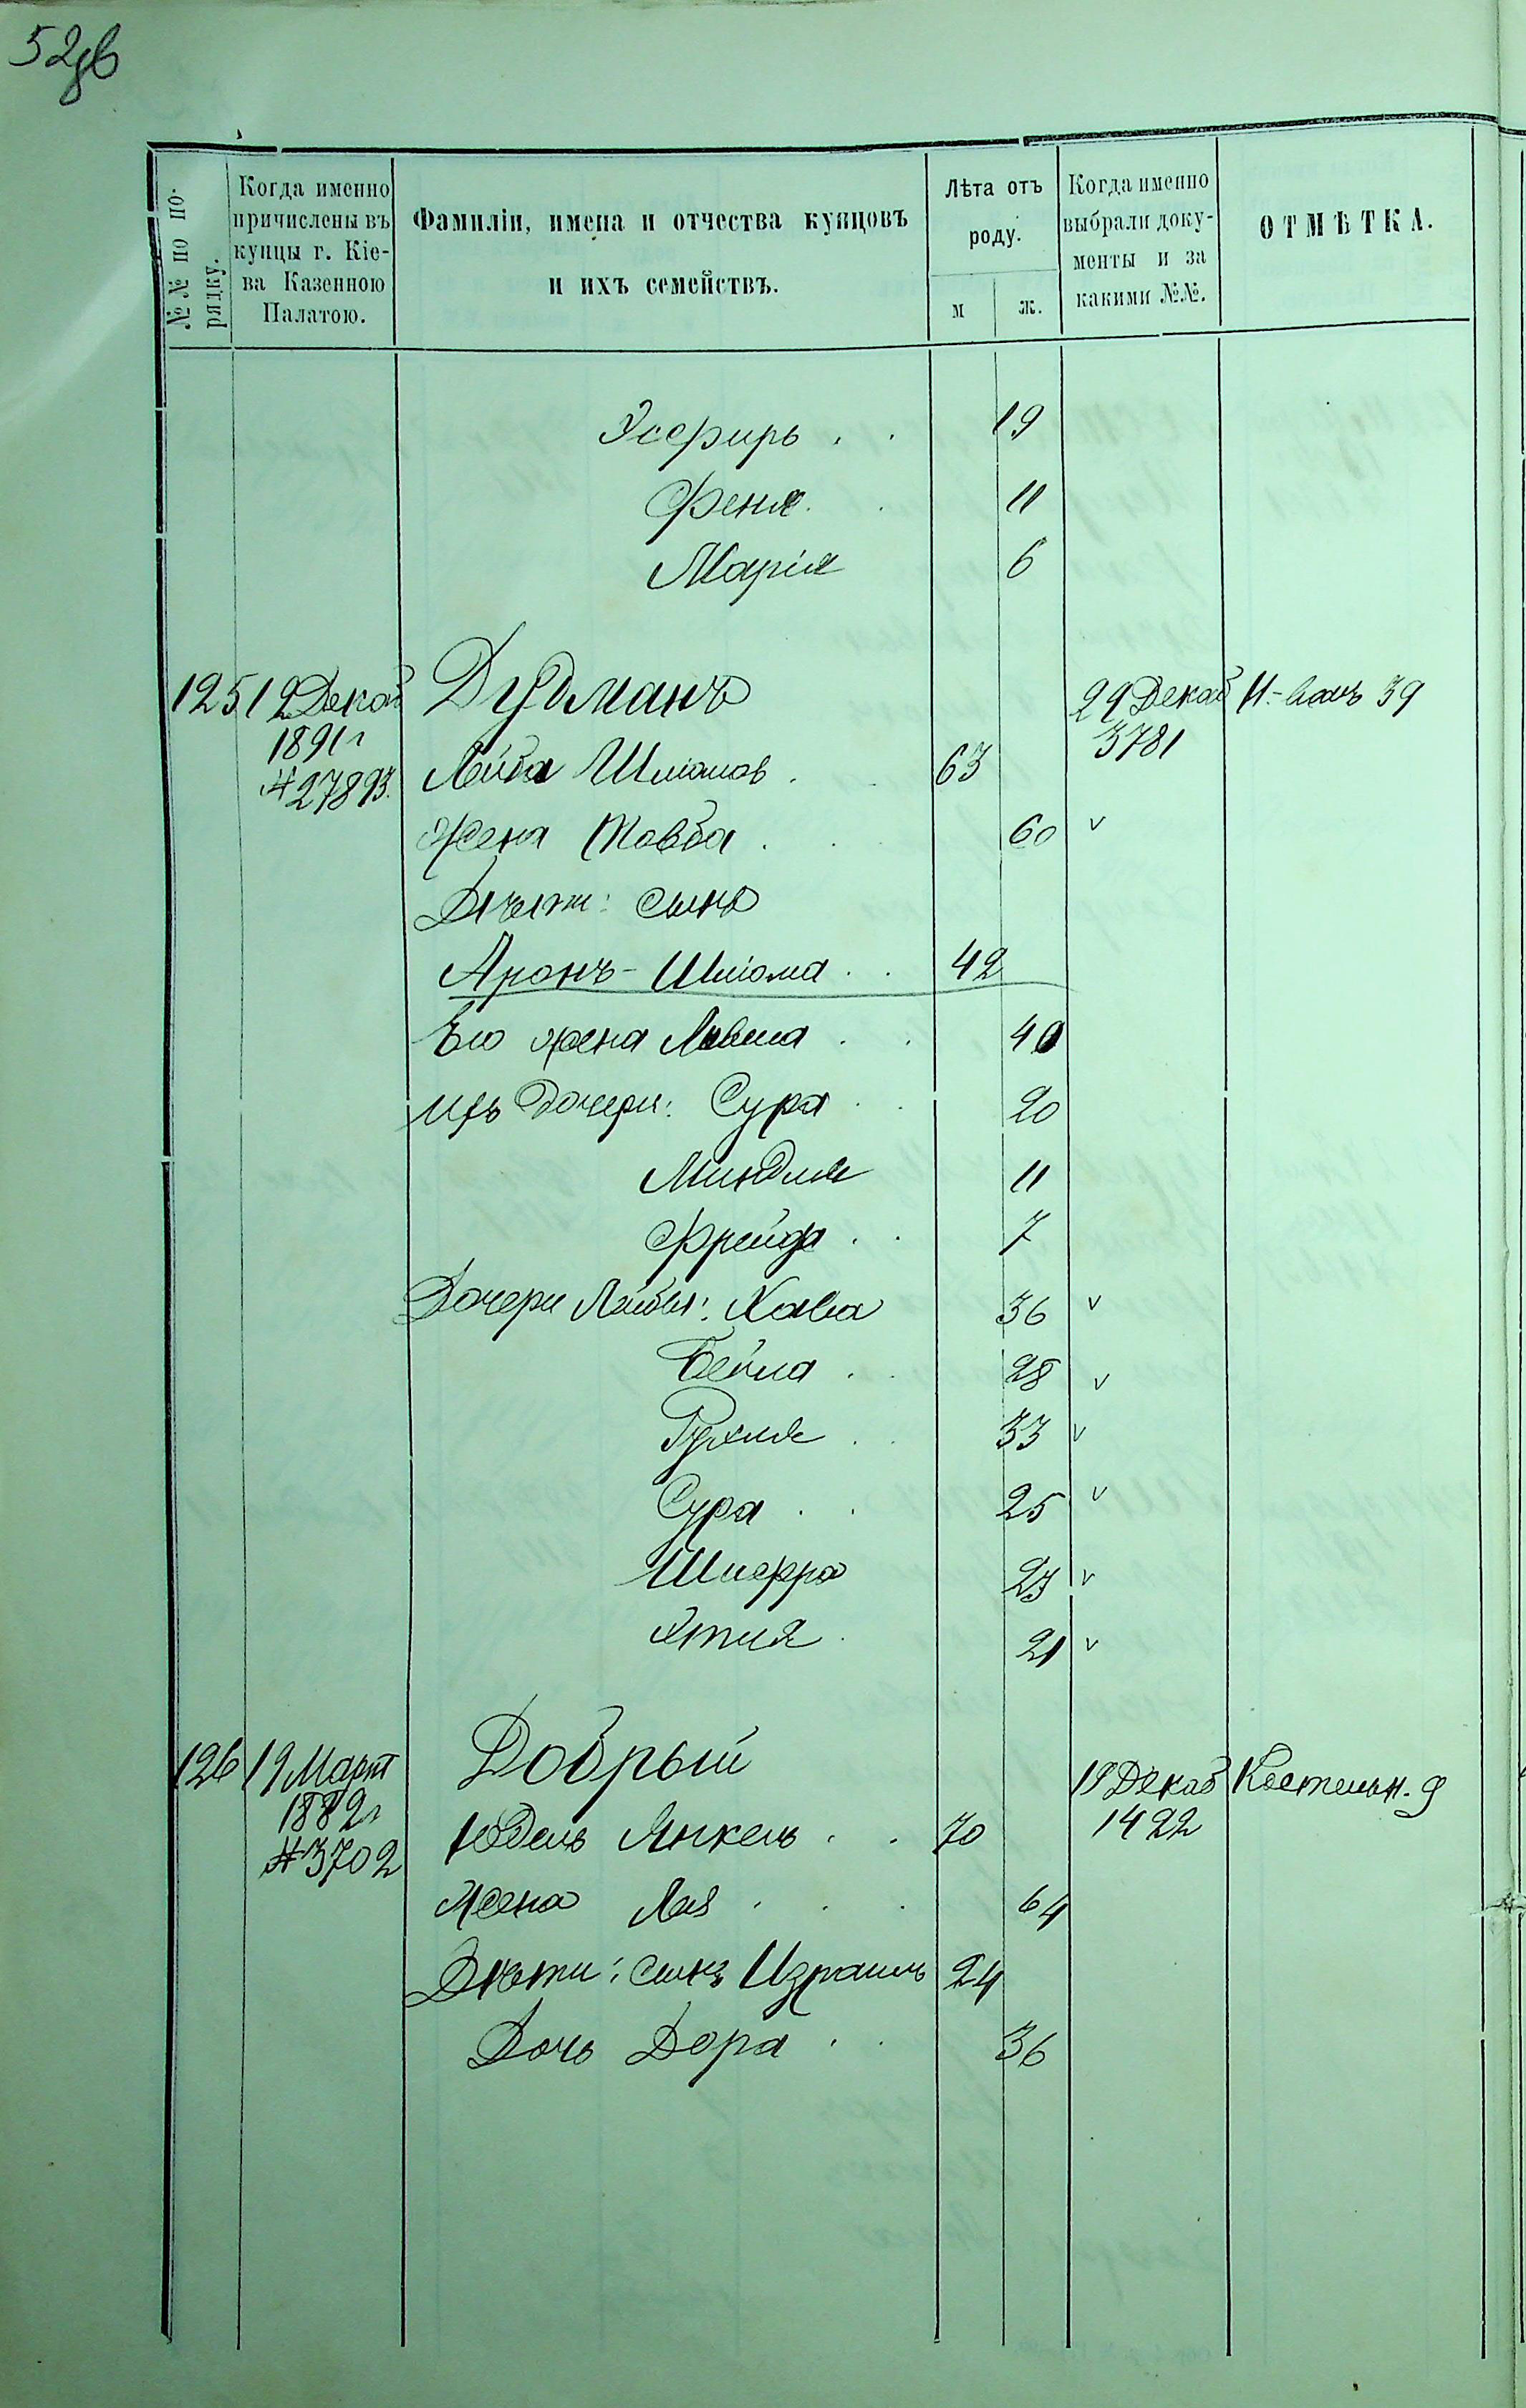 52об
№№ по по-
рядку.
Когда именно
причислены въ
купцы г. Кіе-
ва Казенною
Палатою.
Фамиліи, имена и отчества купцовъ
и ихъ семействъ.
Лѣта отъ
роду.
м
ж.
Когда именно
выбрали доку-
менты и за
какими №№.
ОТМѢТКА.
Эсфирь . . 19
Феня . . 11
Марія 6
125 12 Декаб Дудманъ 29 Декаб 39
1891 г 3781
№ 27893. Лейба Шліомов . . 63
Жена Товба . . . 60 v
Дѣти: сынъ
Аронъ-Шліома . . 42
Его жена . . 40
Ихъ дочери: Сура . . 20
Миндля 11
Фрейда . . 7
Дочери Лейбы: Хава 36 v
Бейла . . 28 v
Рухля . . 33 v
Сура . . 25 v
Шифра 23 v
Этля . 21 v
126 19 Март Добрый 19 Декаб Костельн. 9
1882 г 1422
№ 3702 Юдель Янкель . . 70
Жена Лея . . . 64
Дѣти: сынъ Израиль 24
Дочь Дора . . 36